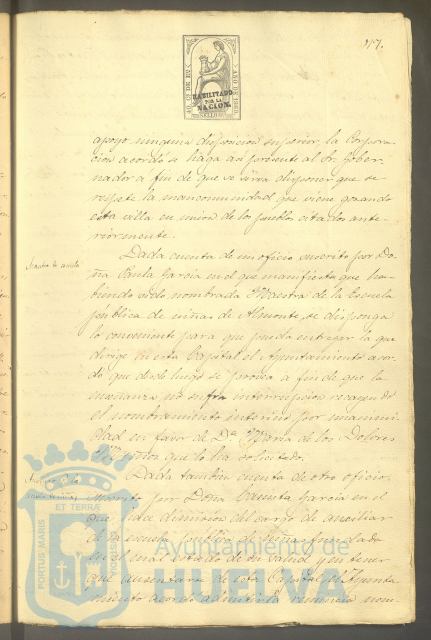 117.
HABILITADO
POR LA
NACION.
apoyo ninguna disposicion superior, la Corpora-
cion acordó se haga asi presente al Sr. Gober-
nador a fin de que se sirva disponer que se
respete la mancomunidad que viene gozando
esta villa en union de los pueblos citados ante-
riormente.
Maestra de escuela
Dada cuenta de un oficio suscrito por Do-
ña Paula Garcia en el que manifiesta que ha-
biendo sido nombrada Maestra de la Escuela
pública de niñas de Almonte, se disponga
lo conveniente para que pueda entregar la que
dirige en esta Capital el Ayuntamiento acor-
dó que desde luego se provea a fin de que la
enseñanza no sufra interrupcion recayendo
el nombramiento interino por unanimi-
dad en favor de Dª Maria de los Dolores
que lo ha solicitado.
Dada tambien cuenta de otro oficio
suscrito por Doña Garcia en el
que hace dimision del cargo de auxiliar
de la escuela pública de niñas fundada
en el mal estado de su salud y en tener
que ausentarse de esta Capital, el Ayunta-
miento acordó admitirla renuncia nom-
PORTUS MARIS
ET TERRÆ
Ayuntamiento de
HUELVA